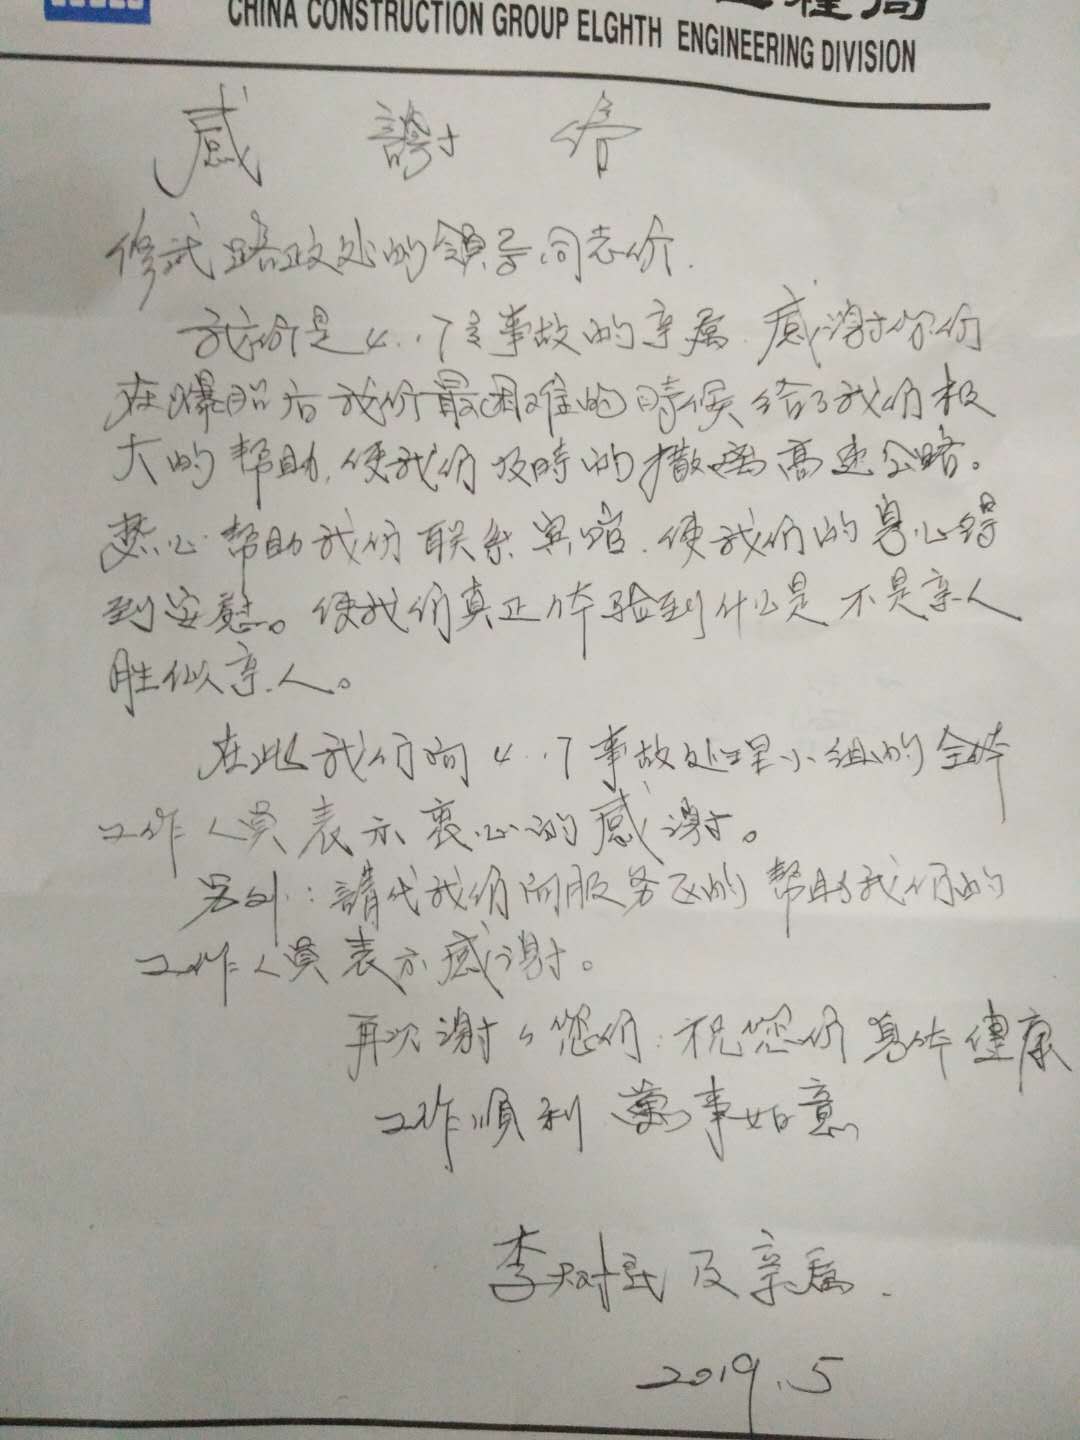 工程局
CHINA CONSTRUCTION GROUP ELGHTH ENGINEERING DIVISION
感謝信
修武路政处的領导同志们.
我们是4..7事故的亲属.感谢你们
在爆胎后我们最困难的時候给了我们极
大的帮助,使我们及時的撤离高速公路。
热心帮助我们联系宾馆.使我们的身心得
到安慰。使我们真正体验到什么是不是亲人
胜似亲人。
在此我们向4..7事故处理小组的全体
工作人員表示衷心的感谢。
另外:請代我们向服务区的帮助我们的
工作人員表示感谢。
再次谢々您们.祝您们身体健康
工作順利 萬事如意
李树民及亲属.
2019.5